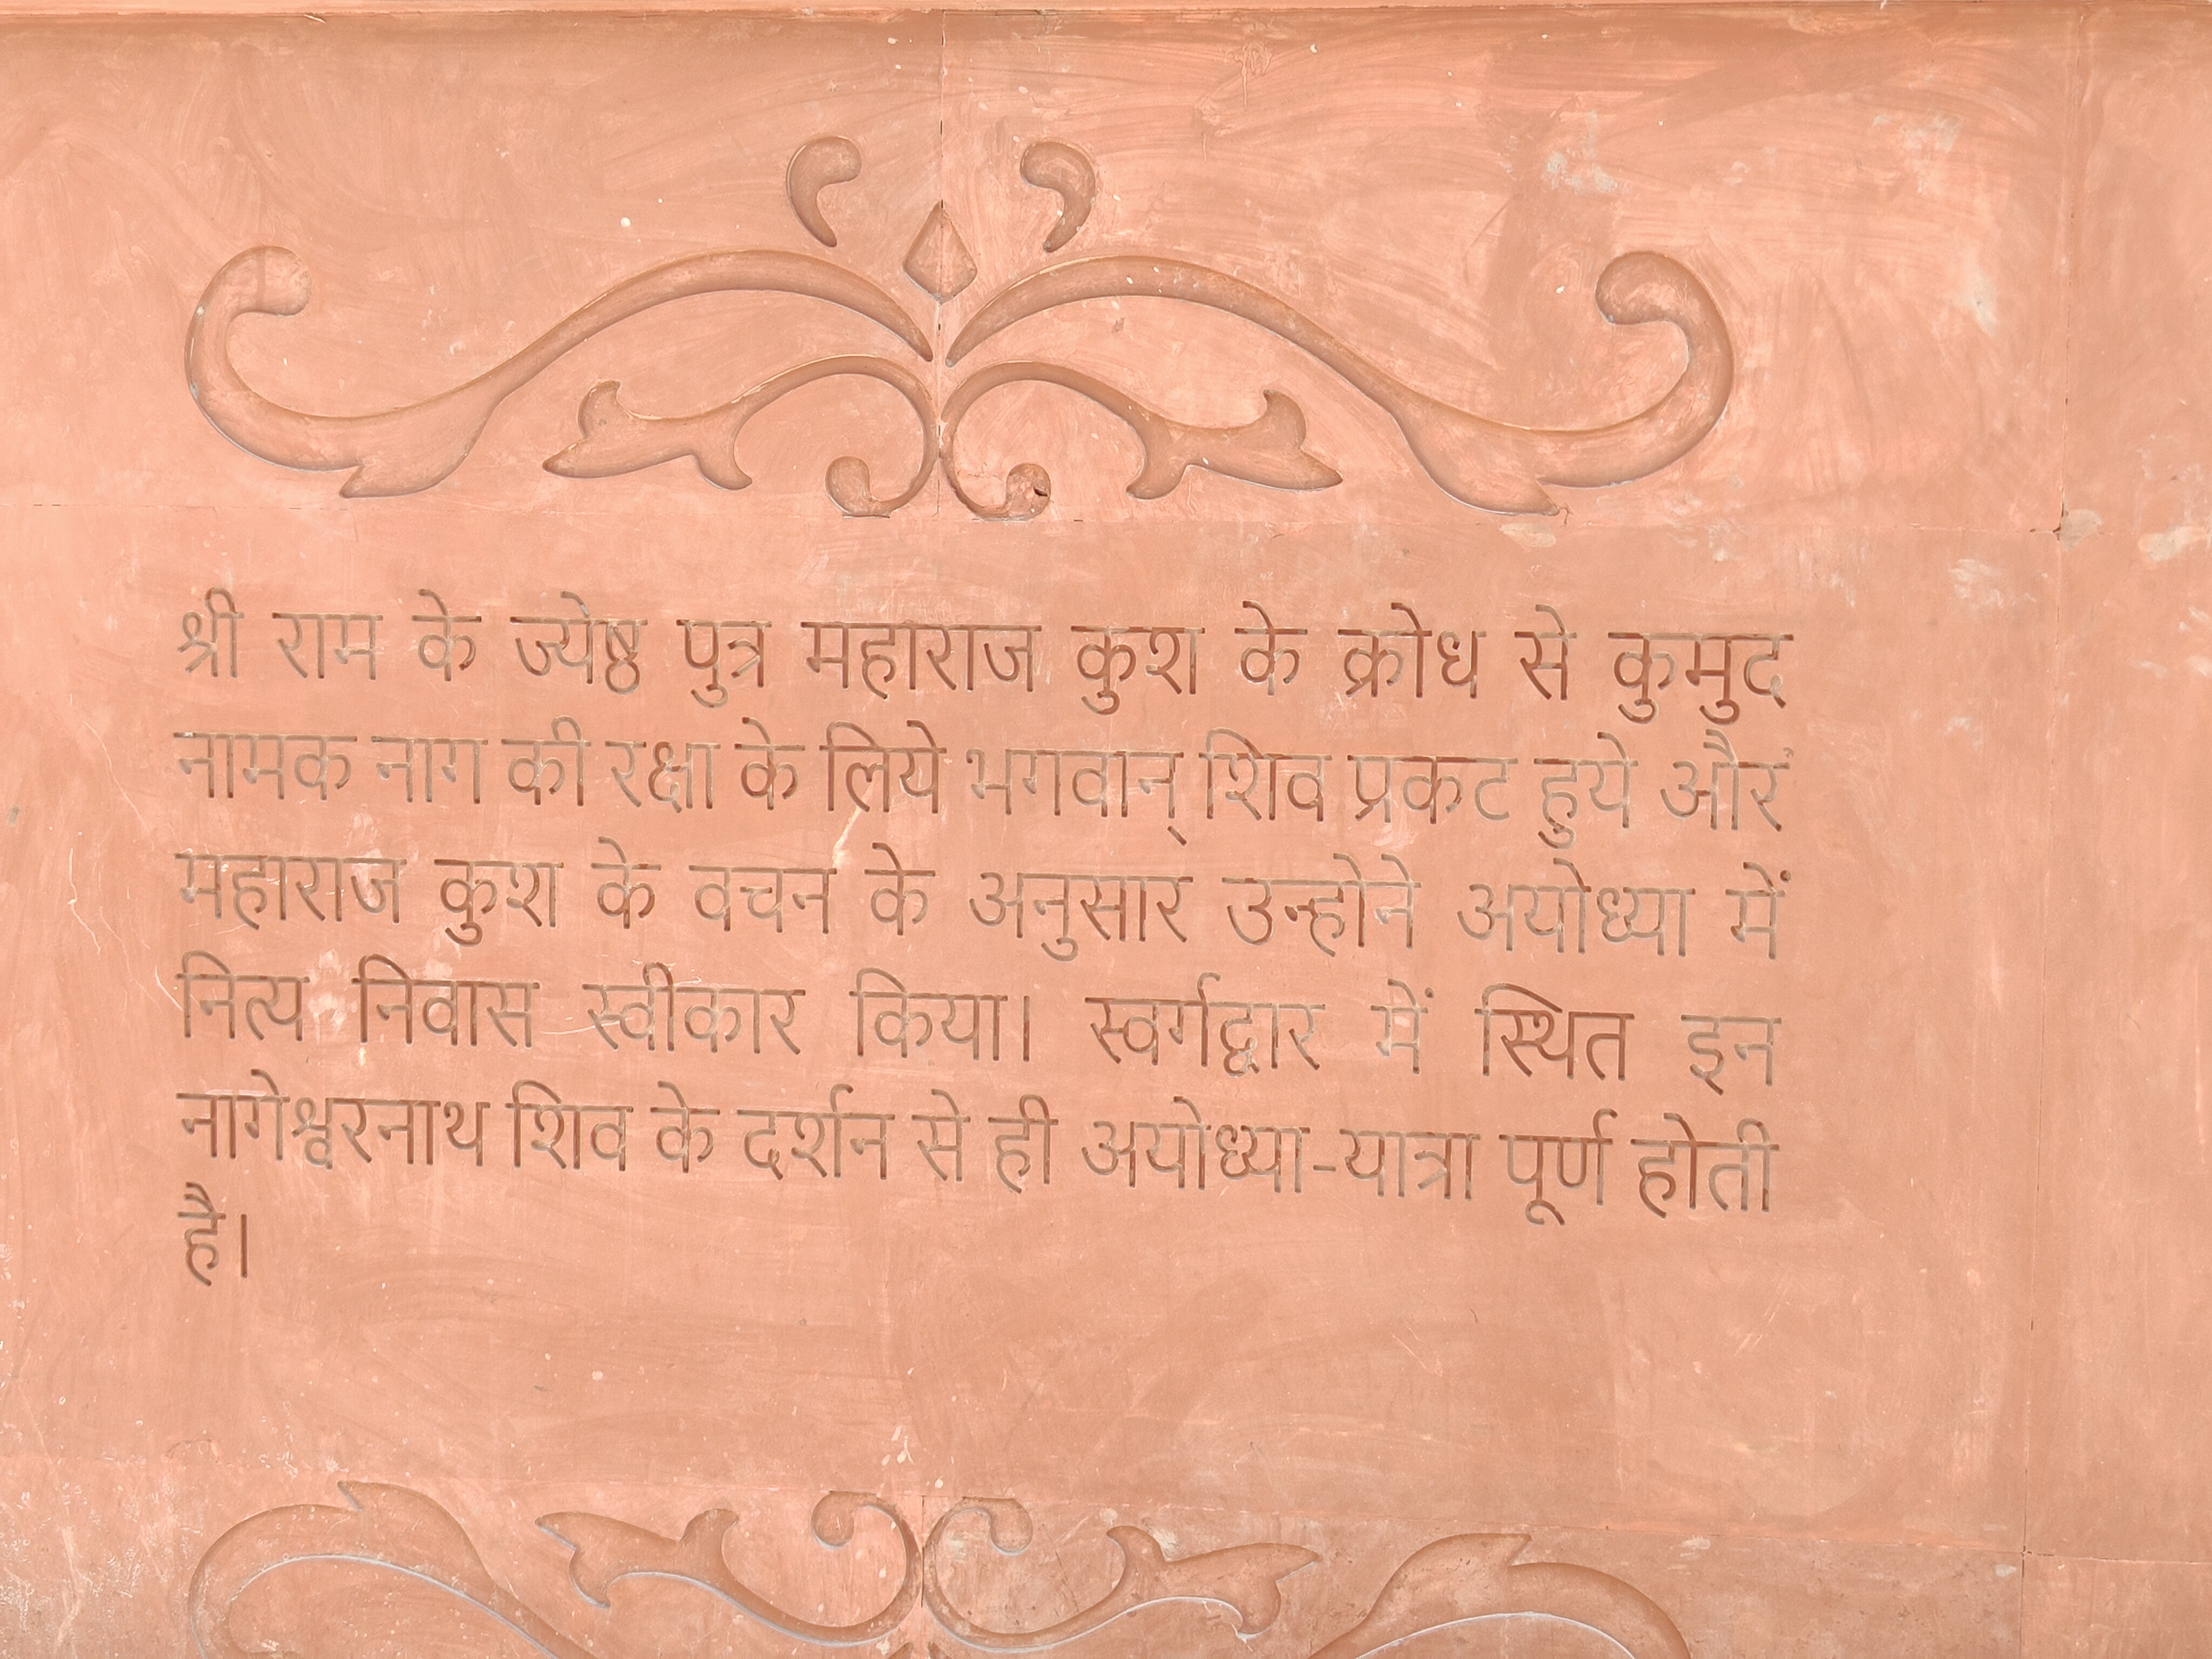 श्री राम के ज्येष्ठ पुत्र महाराज कुश के क्रोध से कुमुद
नामक नाग की रक्षा के लिये भगवान् शिव प्रकट हुये और
महाराज कुश के वचन के अनुसार उन्होने अयोध्या में
नित्य निवास स्वीकार किया। स्वर्गद्वार में स्थित इन
नागेश्वरनाथ शिव के दर्शन से ही अयोध्या-यात्रा पूर्ण होती
है।